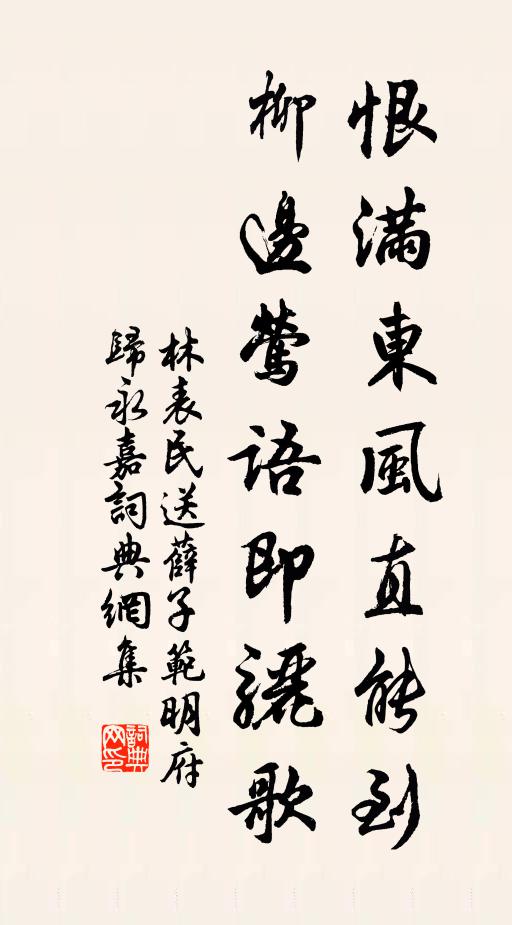 恨滿東風直能到
柳邊鶯語即驪歌
林表民送薛子範明府
歸永嘉詞典網集
詞典网印